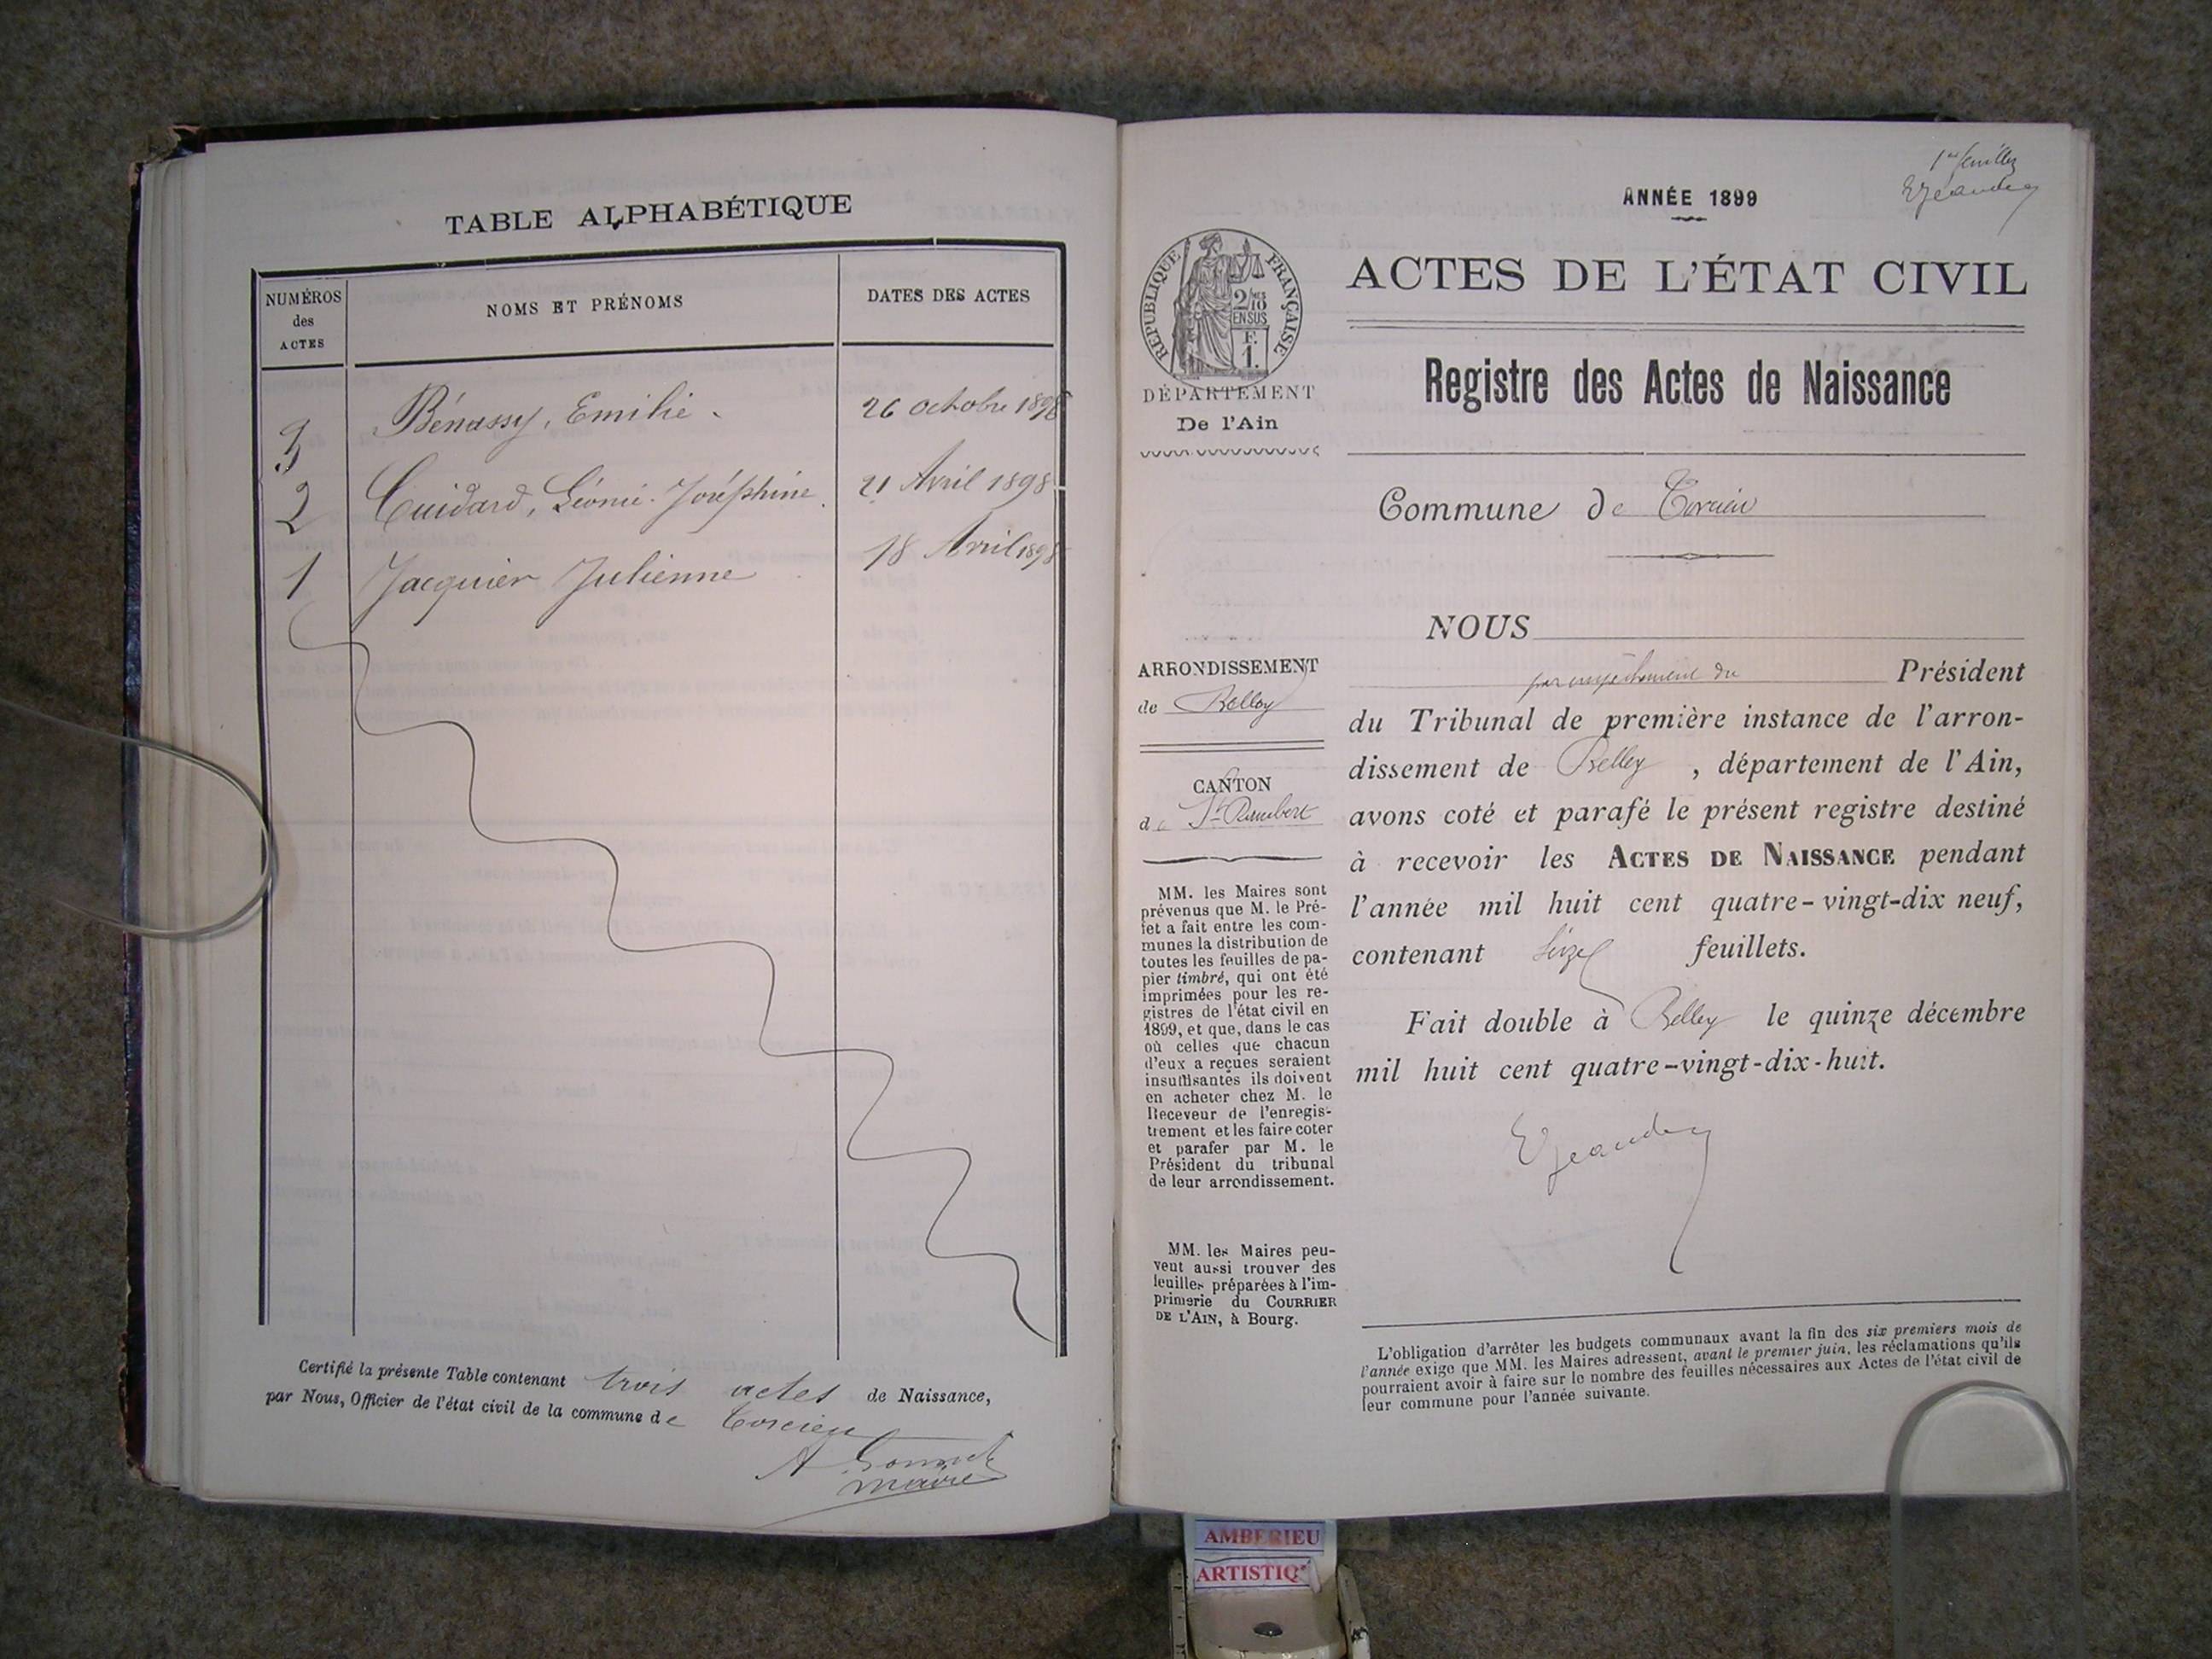 TABLE ALPHABÉTIQUE
NUMÉROS
des
ACTES
NOMS ET PRÉNOMS
DATES DES ACTES
3 Bénassy, Emilie. 26 octobre 1898
2 Cuidard, Léonie-Joséphine. 21 Avril 1898
1 Jacquier Julienne 18 Avril 1898
Certifié la présente Table contenant trois actes de Naissance,
par Nous, Officier de l'état civil de la commune de Torcieu
A
maire
1er feuillet
ANNÉE 1899
RÉPUBLIQUE FRANÇAISE
2/10mes
EN SUS
F.
1.
DÉPARTEMENT
De l'Ain
ARRONDISSEMENT
de Belley
CANTON
de St Rambert
MM. les Maires sont
prévenus que M. le Pré-
fet a fait entre les com-
munes la distribution de
toutes les feuilles de pa-
pier timbré, qui ont été
imprimées pour les re-
gistres de l'état civil en
1899, et que, dans le cas
où celles que chacun
d'eux a reçues seraient
insuffisantes ils doivent
en acheter chez M. le
Receveur de l'enregis-
trement et les faire coter
et parafer par M. le
Président du tribunal
de leur arrondissement.
MM. les Maires peu-
vent aussi trouver des
feuilles préparées à l'im-
primerie du COURRIER
DE L'AIN, à Bourg.
ACTES DE L'ÉTAT CIVIL
Registre des Actes de Naissance
Commune de Torcieu
NOUS
par empêchement du Président
du Tribunal de première instance de l'arron-
dissement de Belley, département de l'Ain,
avons coté et parafé le présent registre destiné
à recevoir les ACTES DE NAISSANCE pendant
l'année mil huit cent quatre-vingt-dix neuf,
contenant seize feuillets.
Fait double à Belley le quinze décembre
mil huit cent quatre-vingt-dix-huit.
L'obligation d'arrêter les budgets communaux avant la fin des six premiers mois de
l'année exige que MM. les Maires adressent, avant le premier juin, les réclamations qu'ils
pourraient avoir à faire sur le nombre des feuilles nécessaires aux Actes de l'état civil de
leur commune pour l'année suivante.
AMBERIEU
ARTISTIQ